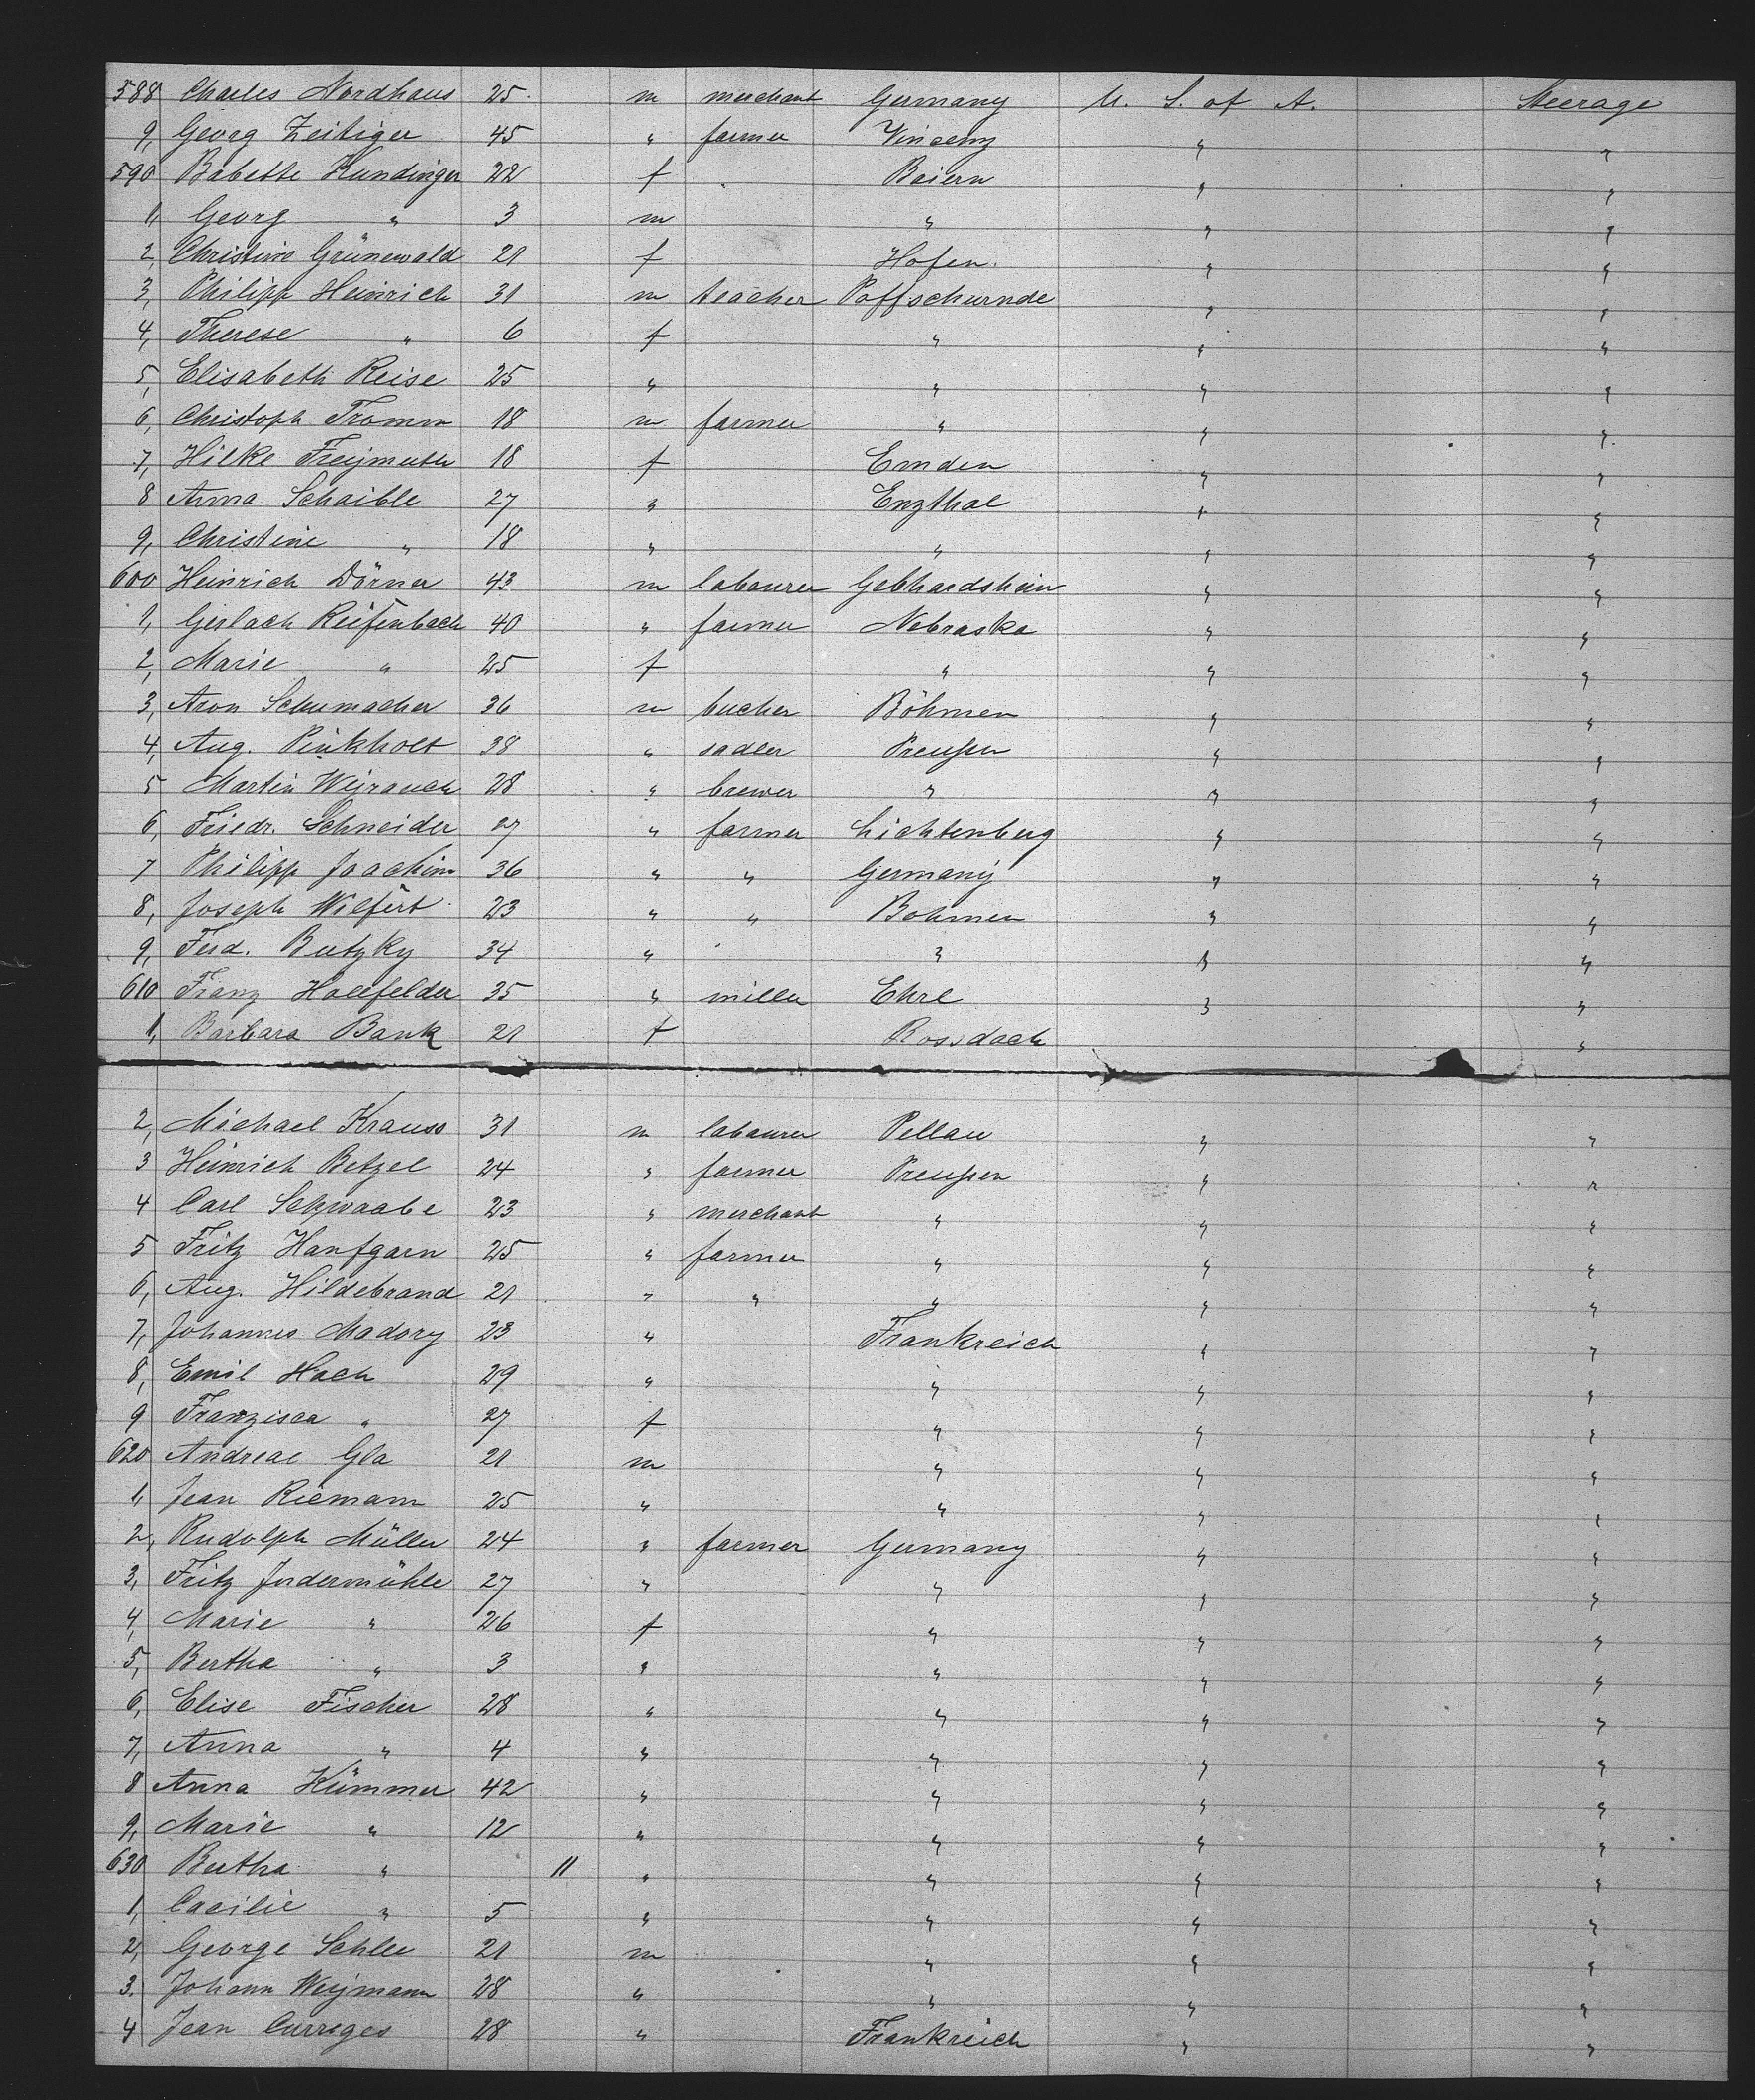 588 Charles Nordhaus 25 m merchant Germany U. S. of A. Steerage
9, Georg Zeitiger 45 " farmer Vincenz " "
590 Babette Kundinger 22 f Baiern " "
1, Georg " 3 m " " "
2, Christine Grünewald 21 f Hofen " "
3, Philipp Heinrich 31 m teacher " "
4, Therese " 6 f " " "
5, Elisabeth Reise 25 " " " "
6, Christoph Fromm 18 m farmer " " "
7, Hilke Freÿmuth 18 f Emden " "
8 Anna Schaible 27 " Enzthal " "
9, Christine " 18 " " " "
600 Heinrich Dörner 43 m labourer Gebhardshain " "
1, Gerlach Reifenbach 40 " farmer Nebraska " "
2, Marie " 25 f " " "
3, Aron Schumacher 36 m bucher Böhmen " "
4, Aug. Pinkholt 38 " sadler Preußen " "
5 Martin Weÿrauch 28 " brewer " " "
6, Friedr. Schneider 27 " farmer Lichtenberg " "
7 Philipp Joachim 36 " " Germany " "
8, Joseph Wilfert 23 " " Bohmen " "
9, Ferd. Butzky 34 " " " "
610 Franz Hollfelder 35 " miller Ehrl " "
1, Barbara Bank 21 f Rossdach "
2, Michael Krauss 31 m labourer Pellau " "
3 Heinrich Betzel 24 " farmer Preußen " "
4 Carl Schwaabe 23 " merchant " " "
5 Fritz Hanfgarn 25 " farmer " " "
6, Aug. Hildebrand 21 " " " " "
7, Johannes Madory 23 " Frankreich " "
8, Emil Hach 29 " " " "
9 Franzisca " 27 f " " "
620 Andreae Gla 21 m " " "
1, Jean Riemann 25 " " " "
2, Rudolph Müller 24 " farmer Germany " "
3, Fritz Indermühle 27 " " " "
4, Marie " 26 f " " "
5, Bertha " 3 " " " "
6, Elise Fischer 28 " " " "
7, Anna " 4 " " " "
8 Anna Kümmer 42 " " " "
9, Marie " 12 " " " "
630 Bertha " 11 " " " "
1, Cacilie " 5 " " " "
2, George Schlee 21 m " " "
3. Johann Weÿmann 28 " " " "
4 Jean Curriges 28 " Frankreich " "